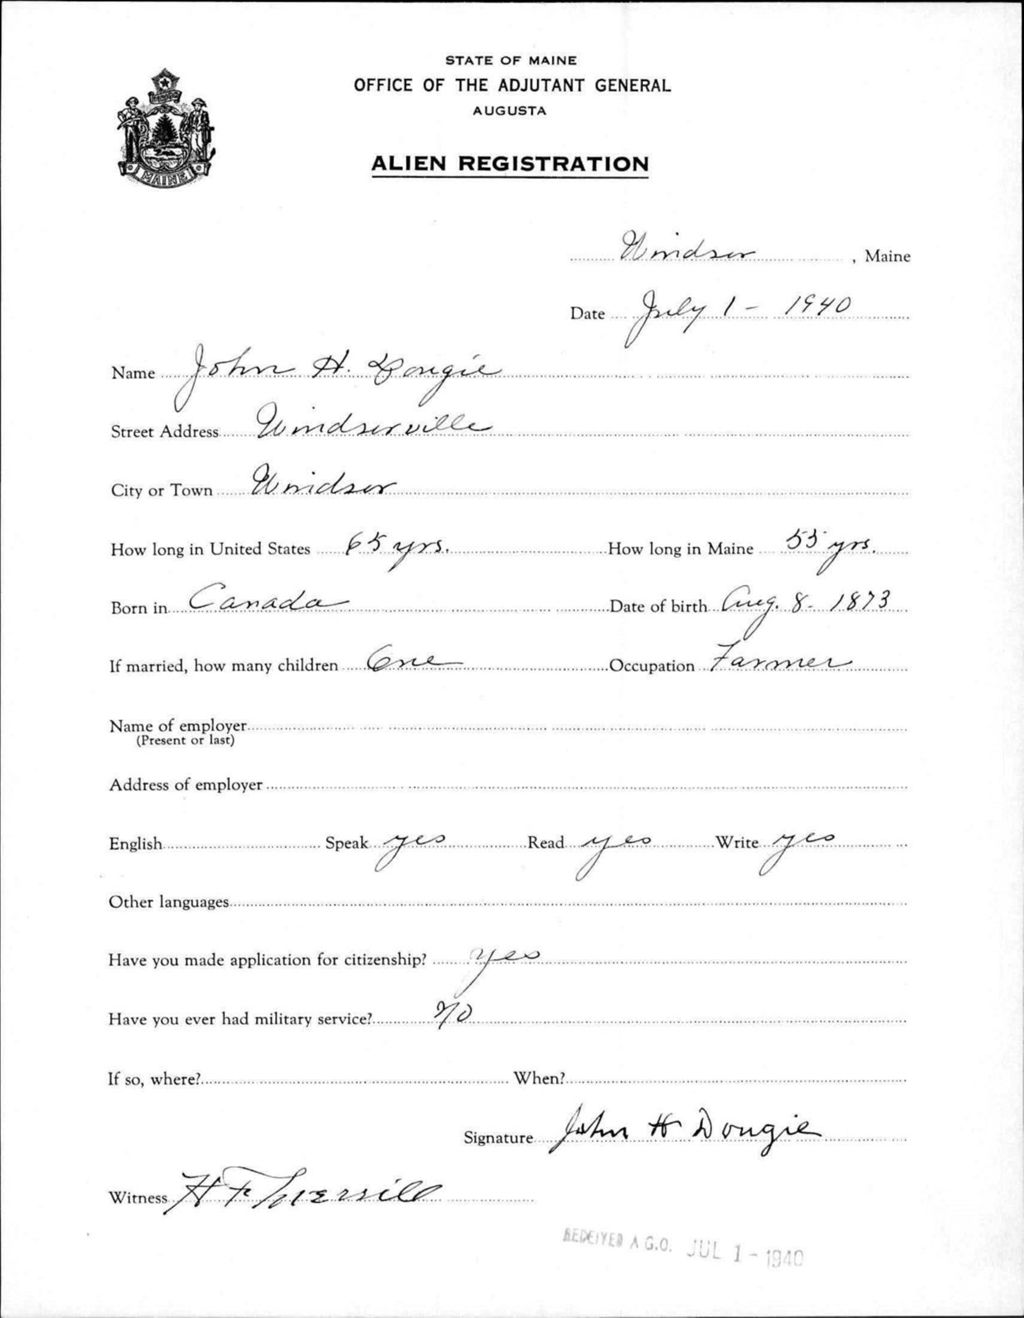 STATE OF MAINE
OFFICE OF THE ADJUTANT GENERAL
AUGUSTA
ALIEN REGISTRATION
MAINE
Windsor, Maine
Date July 1 - 1940
Name John H. Dougie
Street Address Windsorville
City or Town Windsor
How long in United States 65 yrs. How long in Maine 55 yrs.
Born in Canada Date of birth Aug. 8 - 1873
If married, how many children One Occupation Farmer
Name of employer
(Present or last)
Address of employer
English Speak yes Read yes Write yes
Other languages
Have you made application for citizenship? yes
Have you ever had military service? No
If so, where? When?
Signature John H Dougie
Witness H F Merrill
RECEIVED A.G.O. JUL 1 - 1940